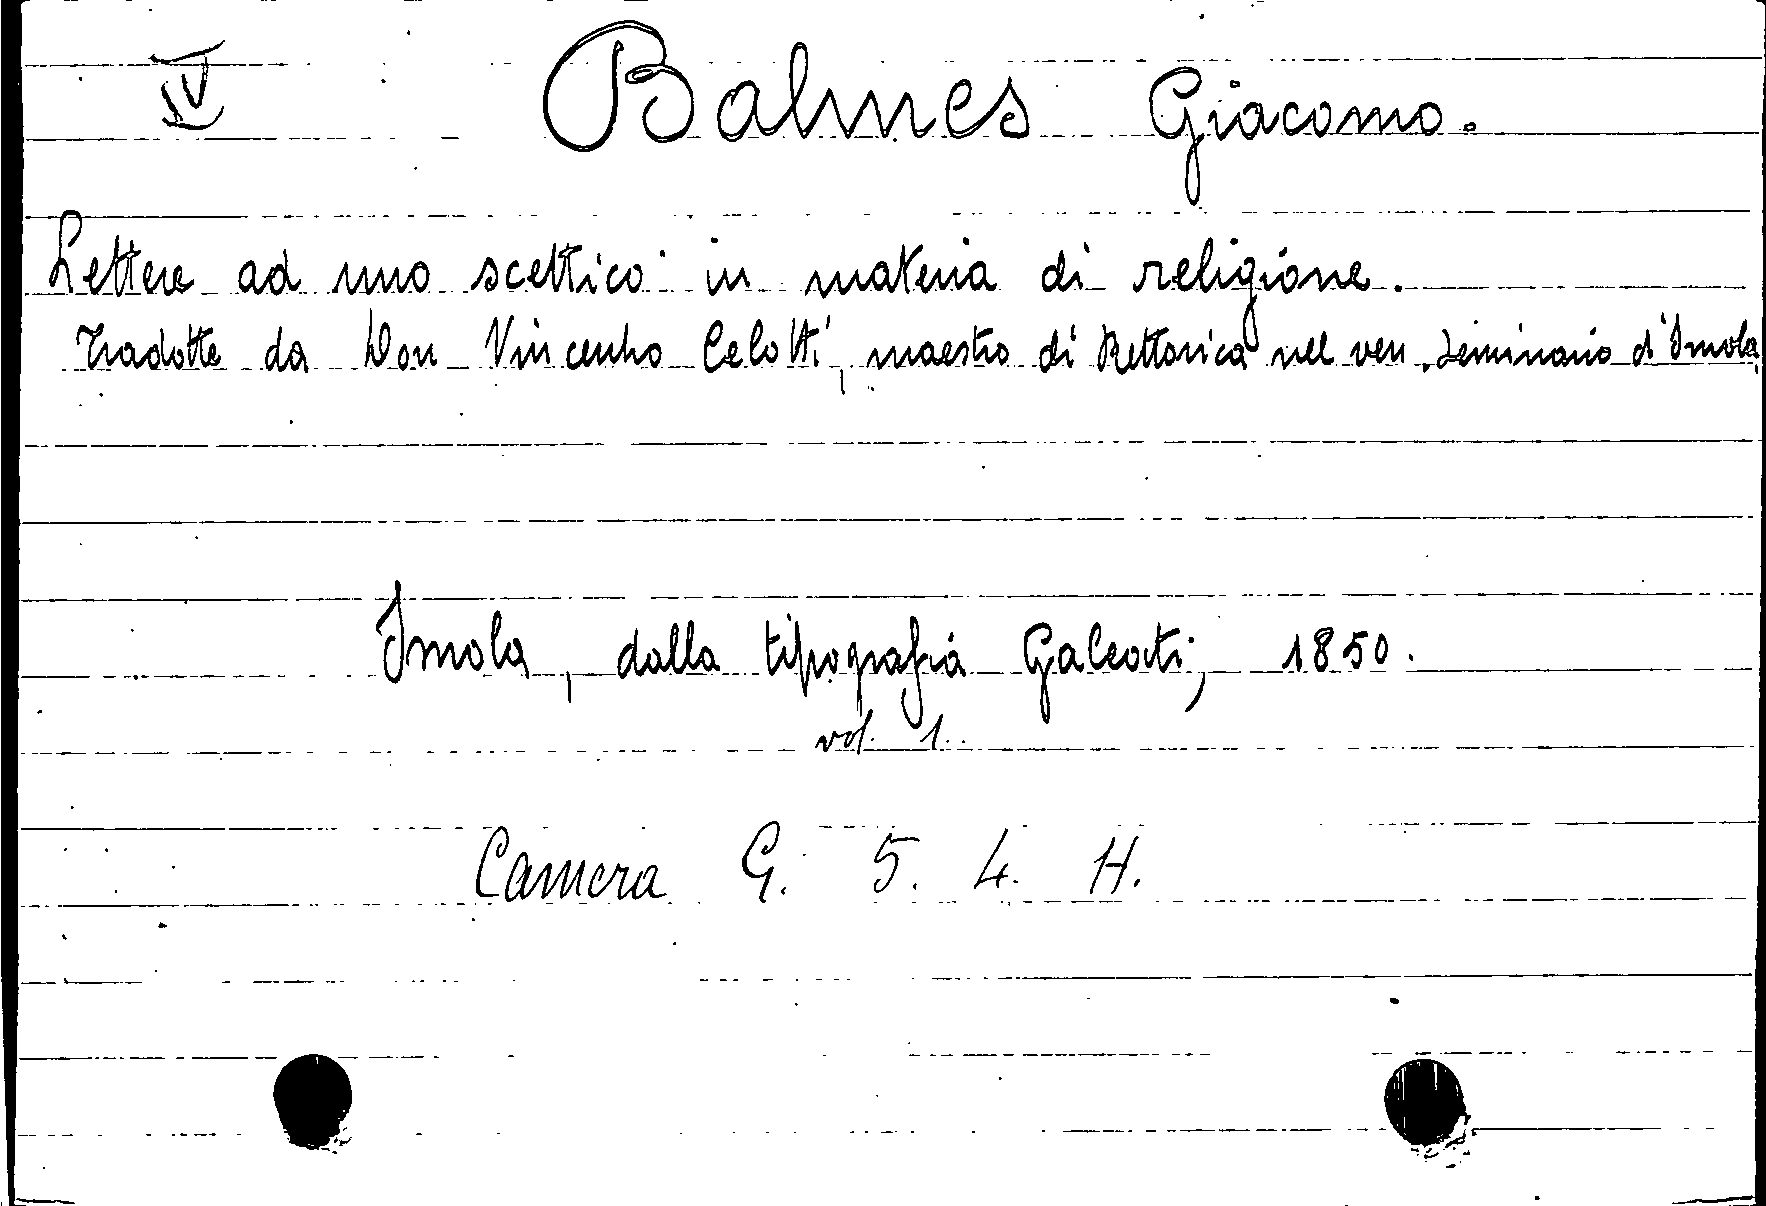 IV Balmes Giacomo.
Lettere ad uno scettico in materia di religione.
Tradotte da Don Vincenzo Celotti, maestro di Rettorica nel ven. Seminario d'Imola,
Imola, dalla tipografia Galeati, 1850.
vol. 1.
Camera G. 5. 4. H.